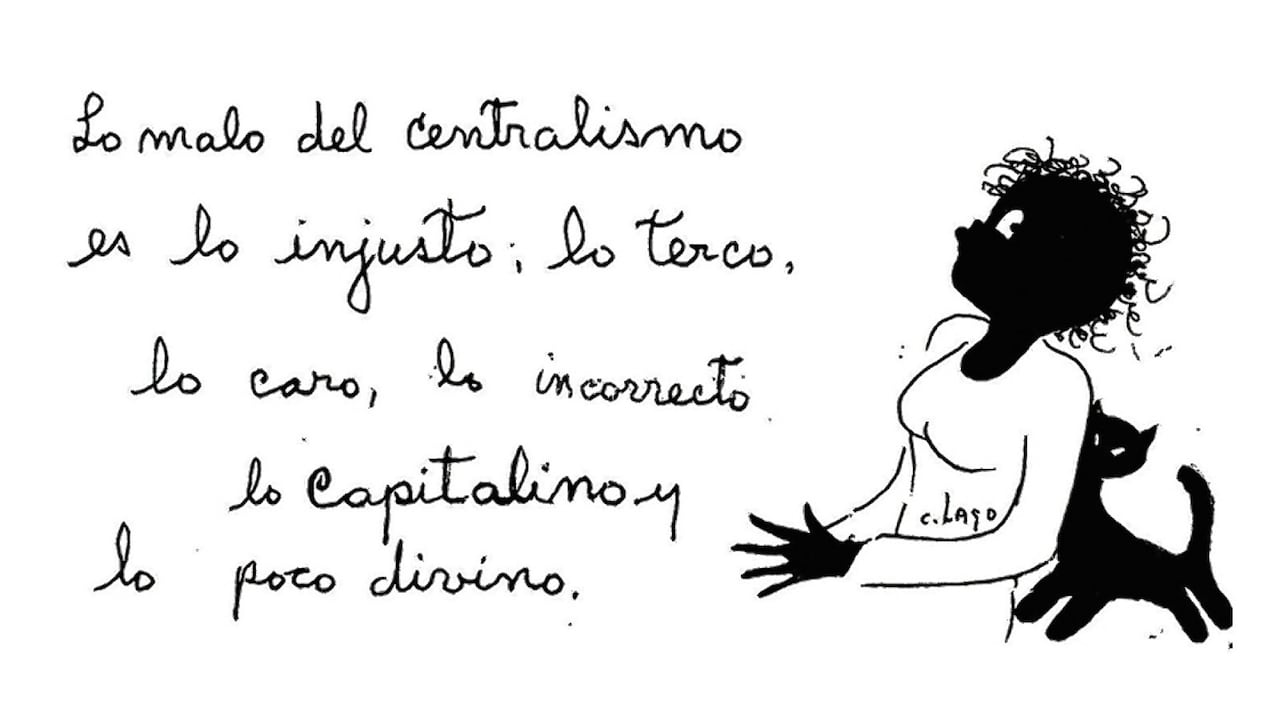 Lo malo del centralismo
es lo injusto; lo terco,
lo caro, lo incorrecto
lo capitalino y
lo poco divino.
c. LAGO